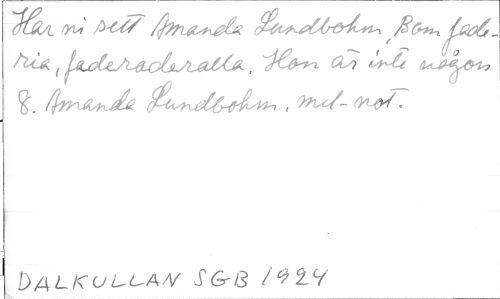 Har ni sett Amanda Lundbohm, Bom fade-
ria, faderaderalla. Hon är inte någon
8. Amanda Lundbohm. mel-not.
DALKULLAN SGB 1924